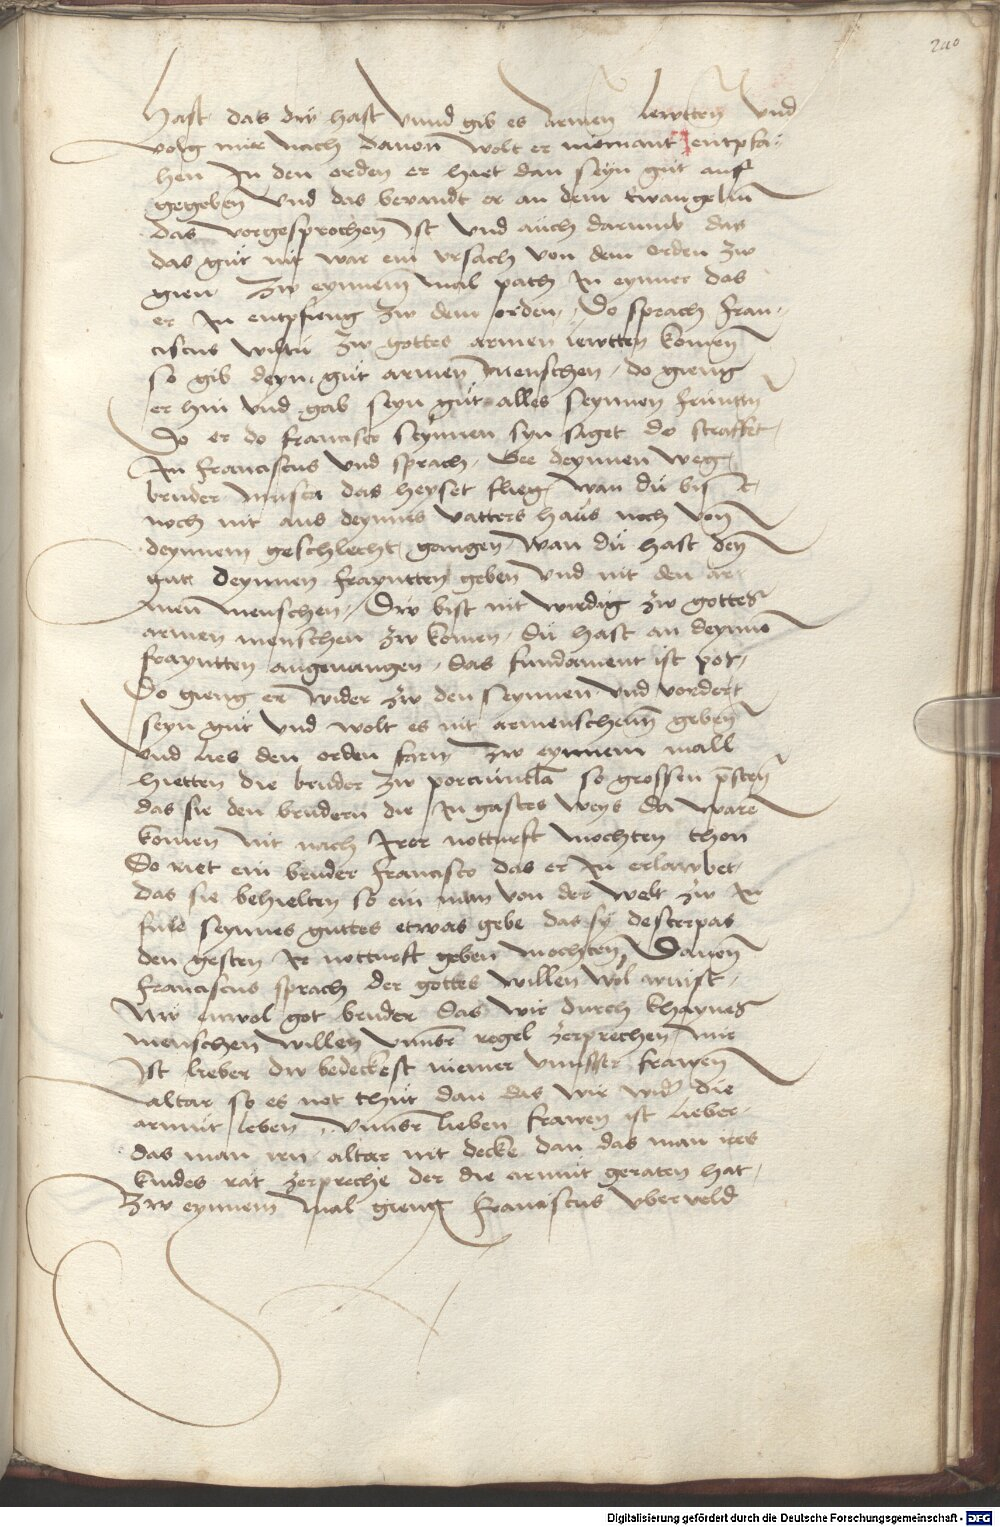 240
hast das dw hast vnnd gib es armen lewtten vnd
volg mir nach dauon wolt er niemant entpfa¬
hen In den orden er hiet dan seyn gut auf
gegeben vnd das bewandt er an dem Ewangelium
das vorgesprochen Ist vnd auch darumb das
das gut nit war ein vrsach von dem orden zw
gien Zw eynnem mal path In eynner das
er In entpfieng zw dem orden, Do sprach Fran¬
ciscus wiltu zw gottes armen lewtten komen
so gib deyn gut armen menschen, do gieng
er hin vnd gab seyn gut alles seynnen frunttn
Do er do francisco seynnen syn saget do straffet
In franciscus vnd sprach, Gee deynnen weg
bruder musca das heyset flieg, wan du bist
noch nit aus deynnis vatters haus noch von
deynnem geschlecht gangen, wan du hast den
gut deynnen frayntten geben vnd nit den ar¬
men menschen, Dw bist nit wirdig zw gottes
armen menschen zw komen, du hast an deynne
frayntten angeuangen, das fundament ist poß,
Do gieng er wider zw den seynnen vnd vordert
seyn gut vnd wolt es nit armenschenn geben
vnd lies den orden farn Zw eynnem mall
hietten die bruder zw portiuncla so grossen presten
das sie den brudern die In gastes weys da waren
komen nit nach Irer notturft mochten thon
Do riet ein bruder francisco das er In erlawbet
das sie behielten so ein man von der welt zw In
fure seynnes guttes etwas gebe das sy desterpas
den gesten Ir notturft geben mochten, Dauon
franciscus sprach der gottes willen wol wuist,
Nw enwol got bruder das wir durch khaynes
menschen willen vnnser regel zerprechen, mir
Ist lieber dw bedeckest niemer vnnsser frawen
altar so es not thut dan das wir wider die
armut leben, vnnser lieben frawen ist lieber
das man irn altar nit decke dan das man ires
kindes rat zerpreche der die armut geraten hat,
Zw eynnem mal gieng Franciscus vberveld
Digitalisierung gefördert durch die Deutsche Forschungsgemeinschaft - DFG